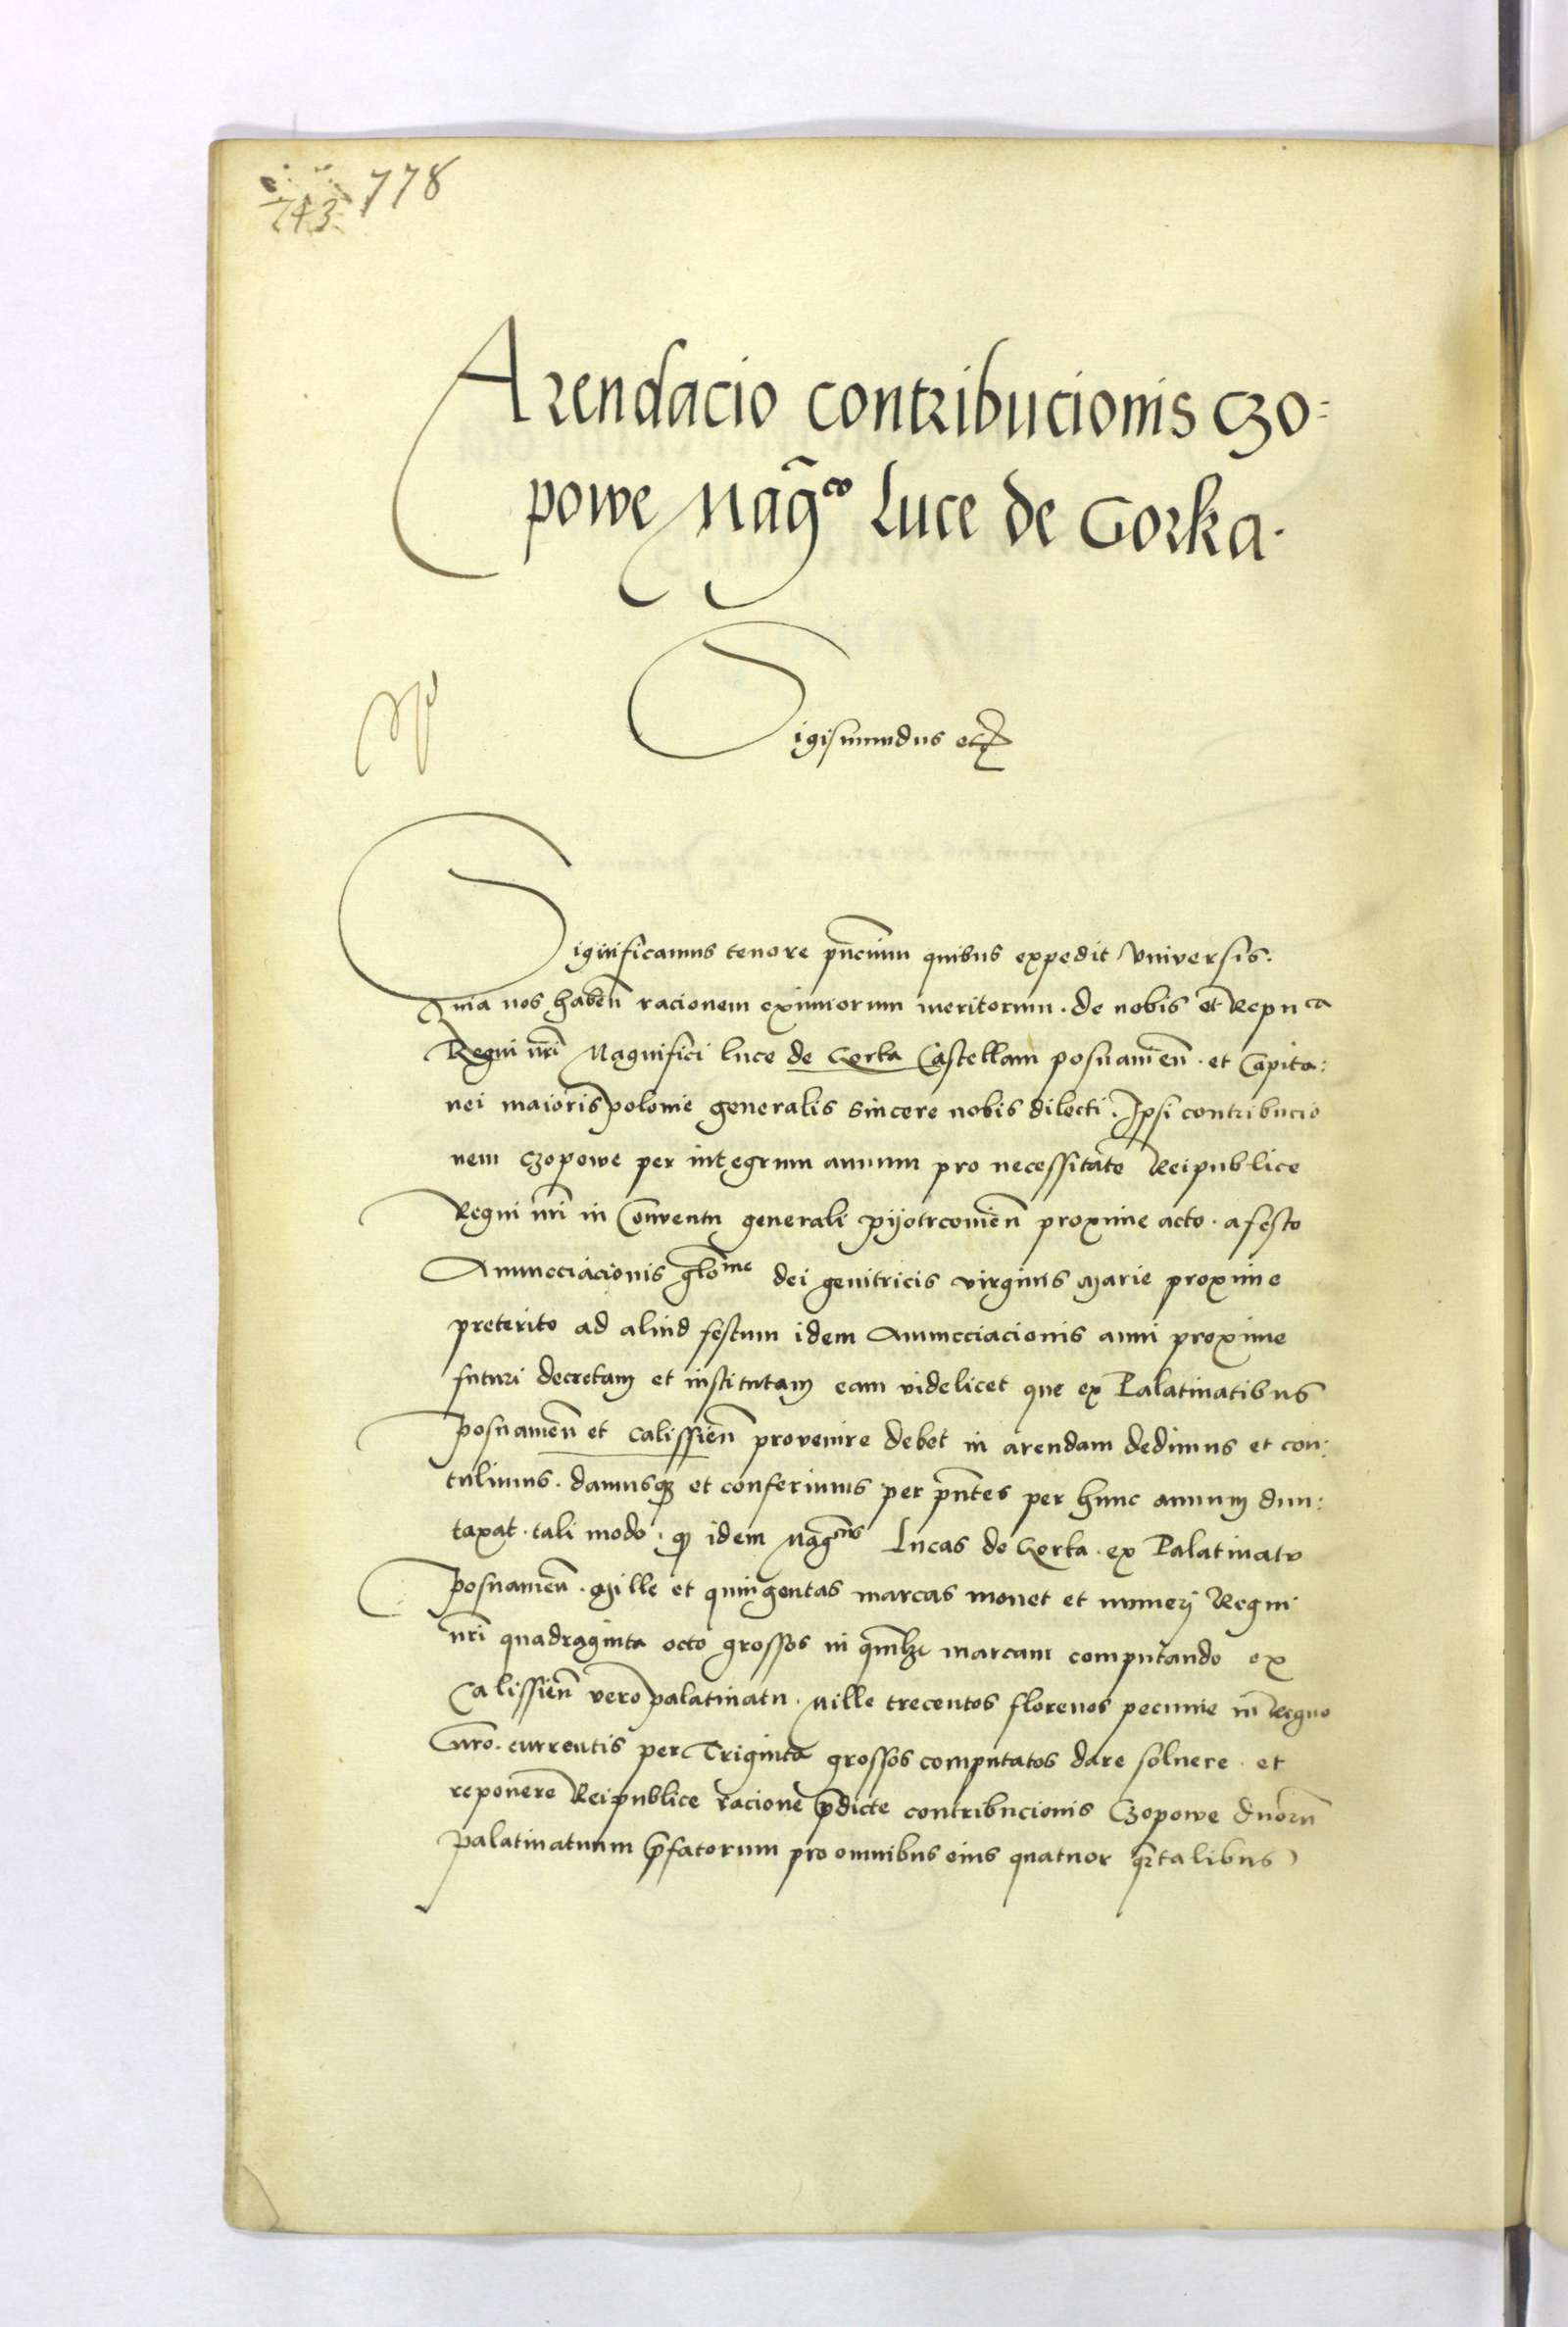 778
743
Arendacio contribucionis czo=
powe Mag̃co Luce de Gorka.
Sigismundus etc
Significamus tenore pñcium quibus expedit Vniversis.
Quia nos habeñ racionem eximiorum meritorum. de nobis et Repuca
Regni nrĩ Magnifici Luce de Gorka Castellani posnanieñ. et Capita:
nei maioris polonie generalis sincere nobis dilecti. Ipsi contribucio
nem Czopowe per integrum annum pro necessitate Reipublice
Regni nrĩ in Conventu generali pijotrcovieñ proxime acto. a festo
Annucciacionis glõme dei genitricis virginis Marie proxime
preterito ad aliud festum idem Annucciacionis anni proxime
futuri decretam et institutam eam videlicet que ex Palatinatibus
Posnanieñ et Calissieñ provenire debet in arendam dedimus et con:
tulimus. damusqz et conferimus per pñtes per hunc annum dun:
taxat. tali modo. qz idem Mag̃cus Lucas de Gorka. ex Palatinatu
Posnanieñ. Mille et quingentas marcas monet et numerj Regni
nrĩ quadraginta octo grossos in qmlzt marcam computando ex
Calissieñ vero palatinatu. Mille trecentos florenos pecunie in Regno
nrõ. currentis per Triginta grossos computatos dare solvere. et
reponere Reipublice racione p̃dicte contribucionis Czopowe duorũ
Palatinatuum p̃fatorum pro omnibus eius quatuor qrtalibus